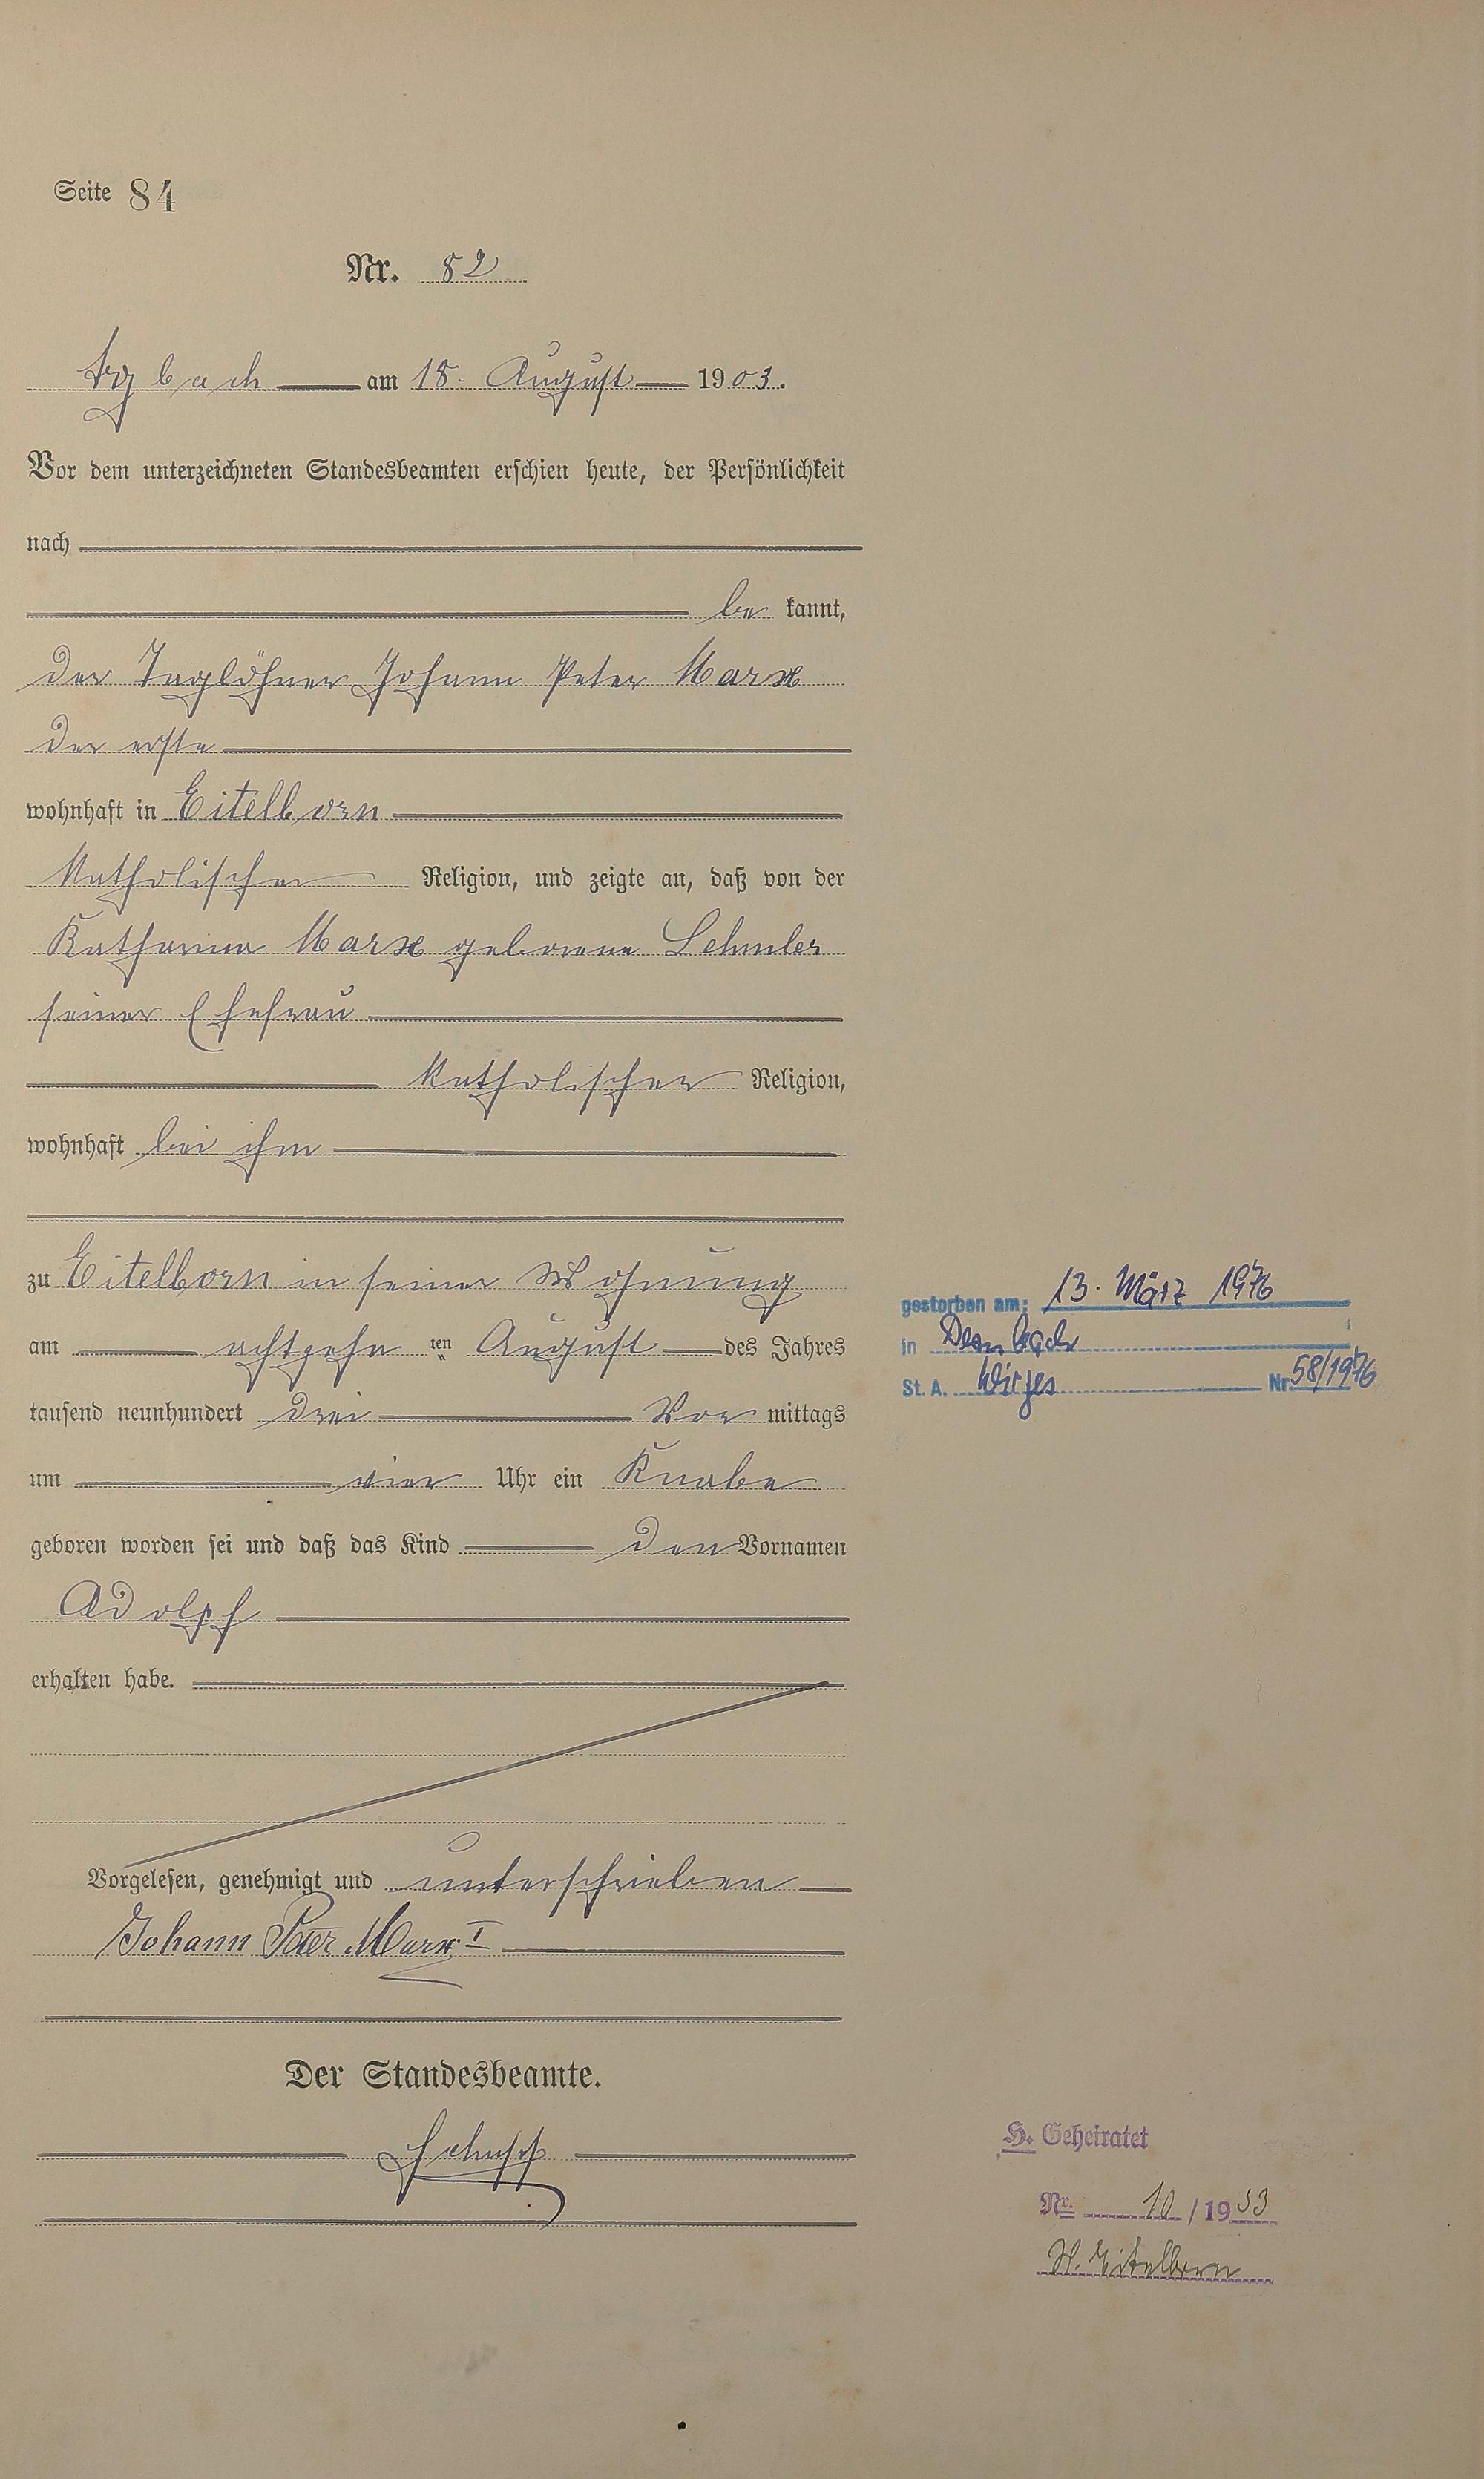 Seite 84
Nr. 82
Arzbach am 18. August 1903.
Vor dem unterzeichneten Standesbeamten erschien heute, der Persönlichkeit
nach
be kannt,
der Taglöhner Johann Peter Marx
der erste
wohnhaft in Eitelborn
katholischer Religion, und zeigte an, daß von der
Katharina Marx geborene Lehmler
seiner Ehefrau
katholischer Religion,
wohnhaft bei ihm
zu Eitelborn in seiner Wohnung
am achtzehn ten August des Jahres
tausend neunhundert drei Vor mittags
um vier Uhr ein Knabe
geboren worden sei und daß das Kind den Vornamen
Adolph
erhalten habe.
Vorgelesen, genehmigt und unterschrieben
Johann Peter Marx I
Der Standesbeamte.
Schupp
gestorben am: 13. März 1976
in Dernbach
St. A. Wirges Nr. 58/1976
H. Geheiratet
Nr. 10/1933
St. Eitelborn